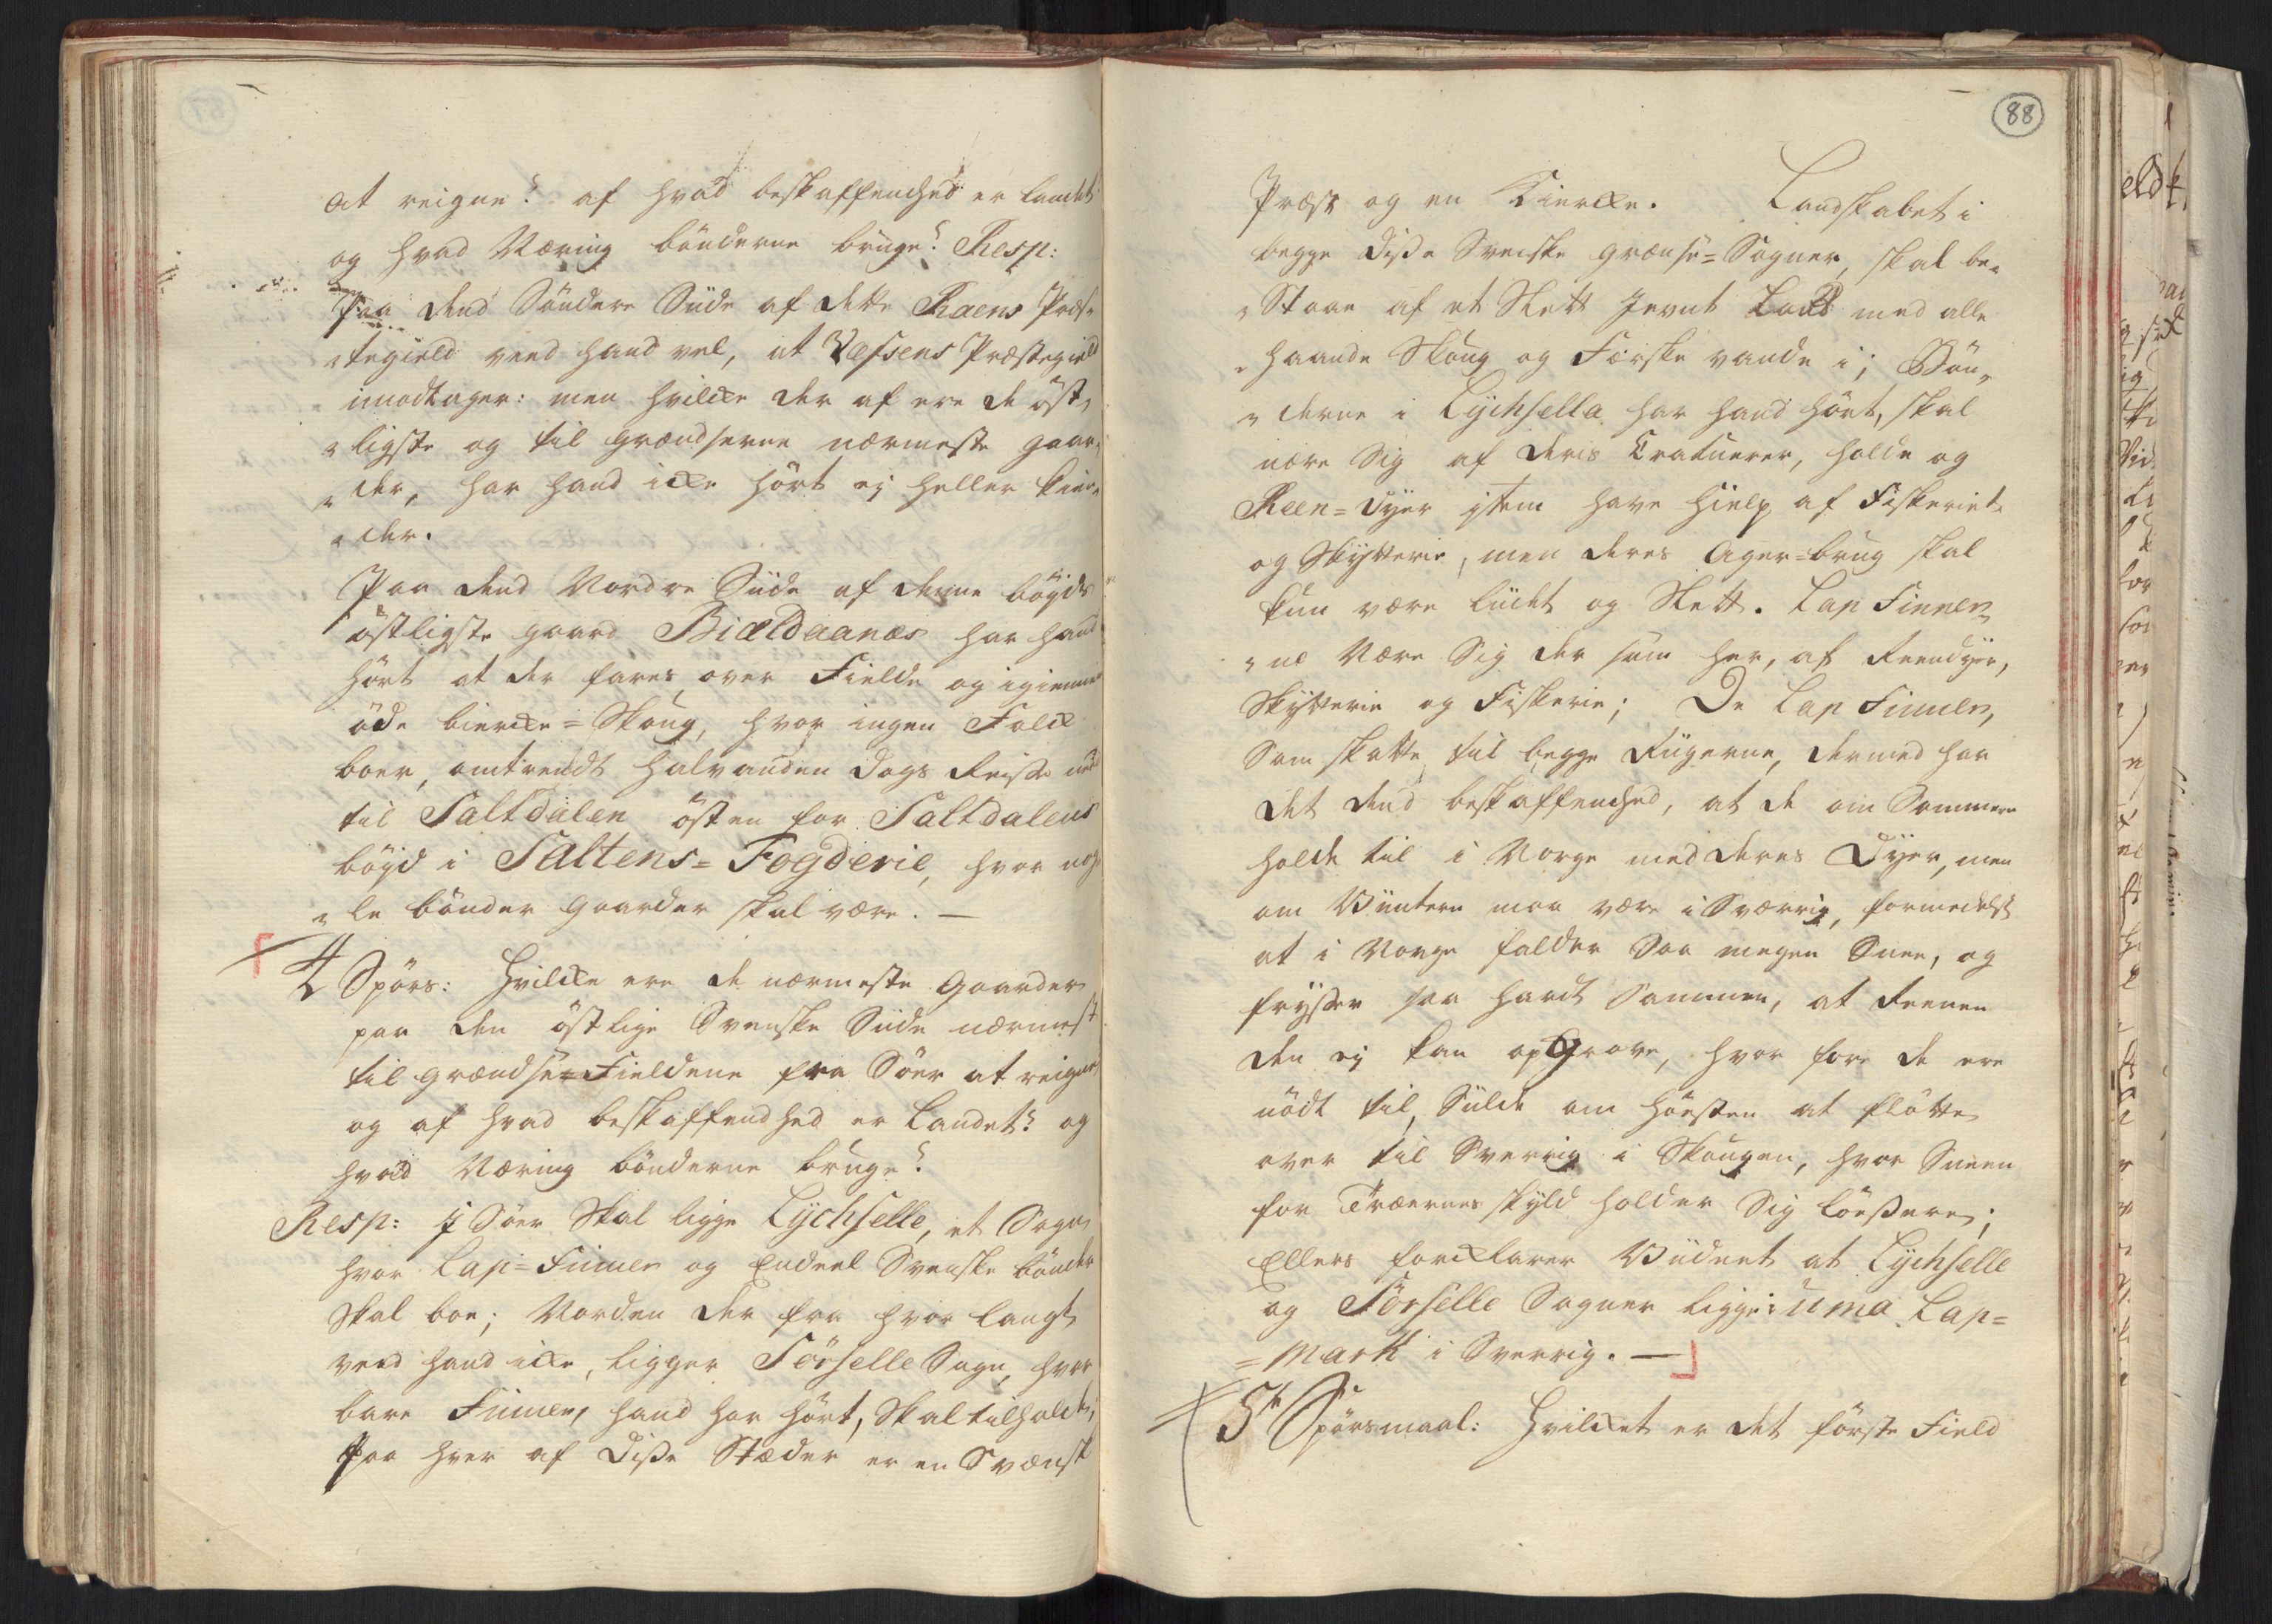 at reigne? af hvad beskaffenhed er landet
og hvad Næring bönderne brüge? Resp:
Paa dend Söndere Siide af dette Raens Præs-
tegield veed hand vel, at Vefsens Præstegield
imodtager: men hvilcke der af ere de öst-
ligste og til grændserne nærmeste gaar-
der, har hand icke hört ej heller kien-
der.
Paa dend Nordre Siide af denne böyds
östligste gaard Biældaanæs har hand
hört at der fares over Fielde og igiennem
öde biercke=Skoug, hvor ingen Folck
boer, omtrendt halvanden dags Reisse ned
til Saltdalen östen for Saltdalens
böyd i Saltens=Fogderie, hvor nog-
le bönder gaarder skal være. —
4 Spörs: Hvilcke ere de nærmeste Gaarder
paa den östlige Svenske Siide nærmest
til grændse=Fieldene fra Söer at reigne
og af hvad beskaffendhed er Landet? og
hvad Næring bönderne brüge?
Resp: J Söer Skal ligge Lychselle, et Sogn
hvor Lap=Finner og Endeel Svenske bönder
Skal boe; Norden der fra hvor langt
veed hand icke, ligger Sörselle Sogn, hvor
bare Finner, hand har hört, Skal tilholde,
Paa hver af disse Stæder er en Svensk
88
Præst og en Kiercke. Landskabet i
begge disse Svenske grænse=Sogner, skal be-
Staae af et Slett Jevnt Land med alle
haande Skoug og Færske vande i; Bön-
derne i Lychsella har hand hört, skal
nære Sig af deris Creatuurer, holde og
Reen=dyer jtem have Hielp af Fiskeriet
og Skytterie, men deres Ager=brug skal
kun være liidet og Slett. Lap Finner-
ne Nære Sig der som her, af Reendyer,
Skytterie og Fiskerie; De Lap Finner,
Som skatte til begge Riigerne, dermed har
det dend beskaffenhed, at de om Sommeren
holde til i Norge med deres Dyer, men
om Viinteren maa være i Sverrig, formedelst
at i Norge falder Saa megen Snee, og
frysser saa hardt Sammen, at Reenen
den ej kan opgrave, hvor fore de ere
nödt til, Siilde om Höesten at flötte
over til Sverrig i Skougen, hvor Sneen
for Træernes skyld holder Sig löessere;
Ellers forcklarer Viidnet at Lychselle
og Sörselle Sogner ligge i Uma Lap=
=mark i Sverrig. —
5te Spörsmaal: Hvilcket er det förste Field